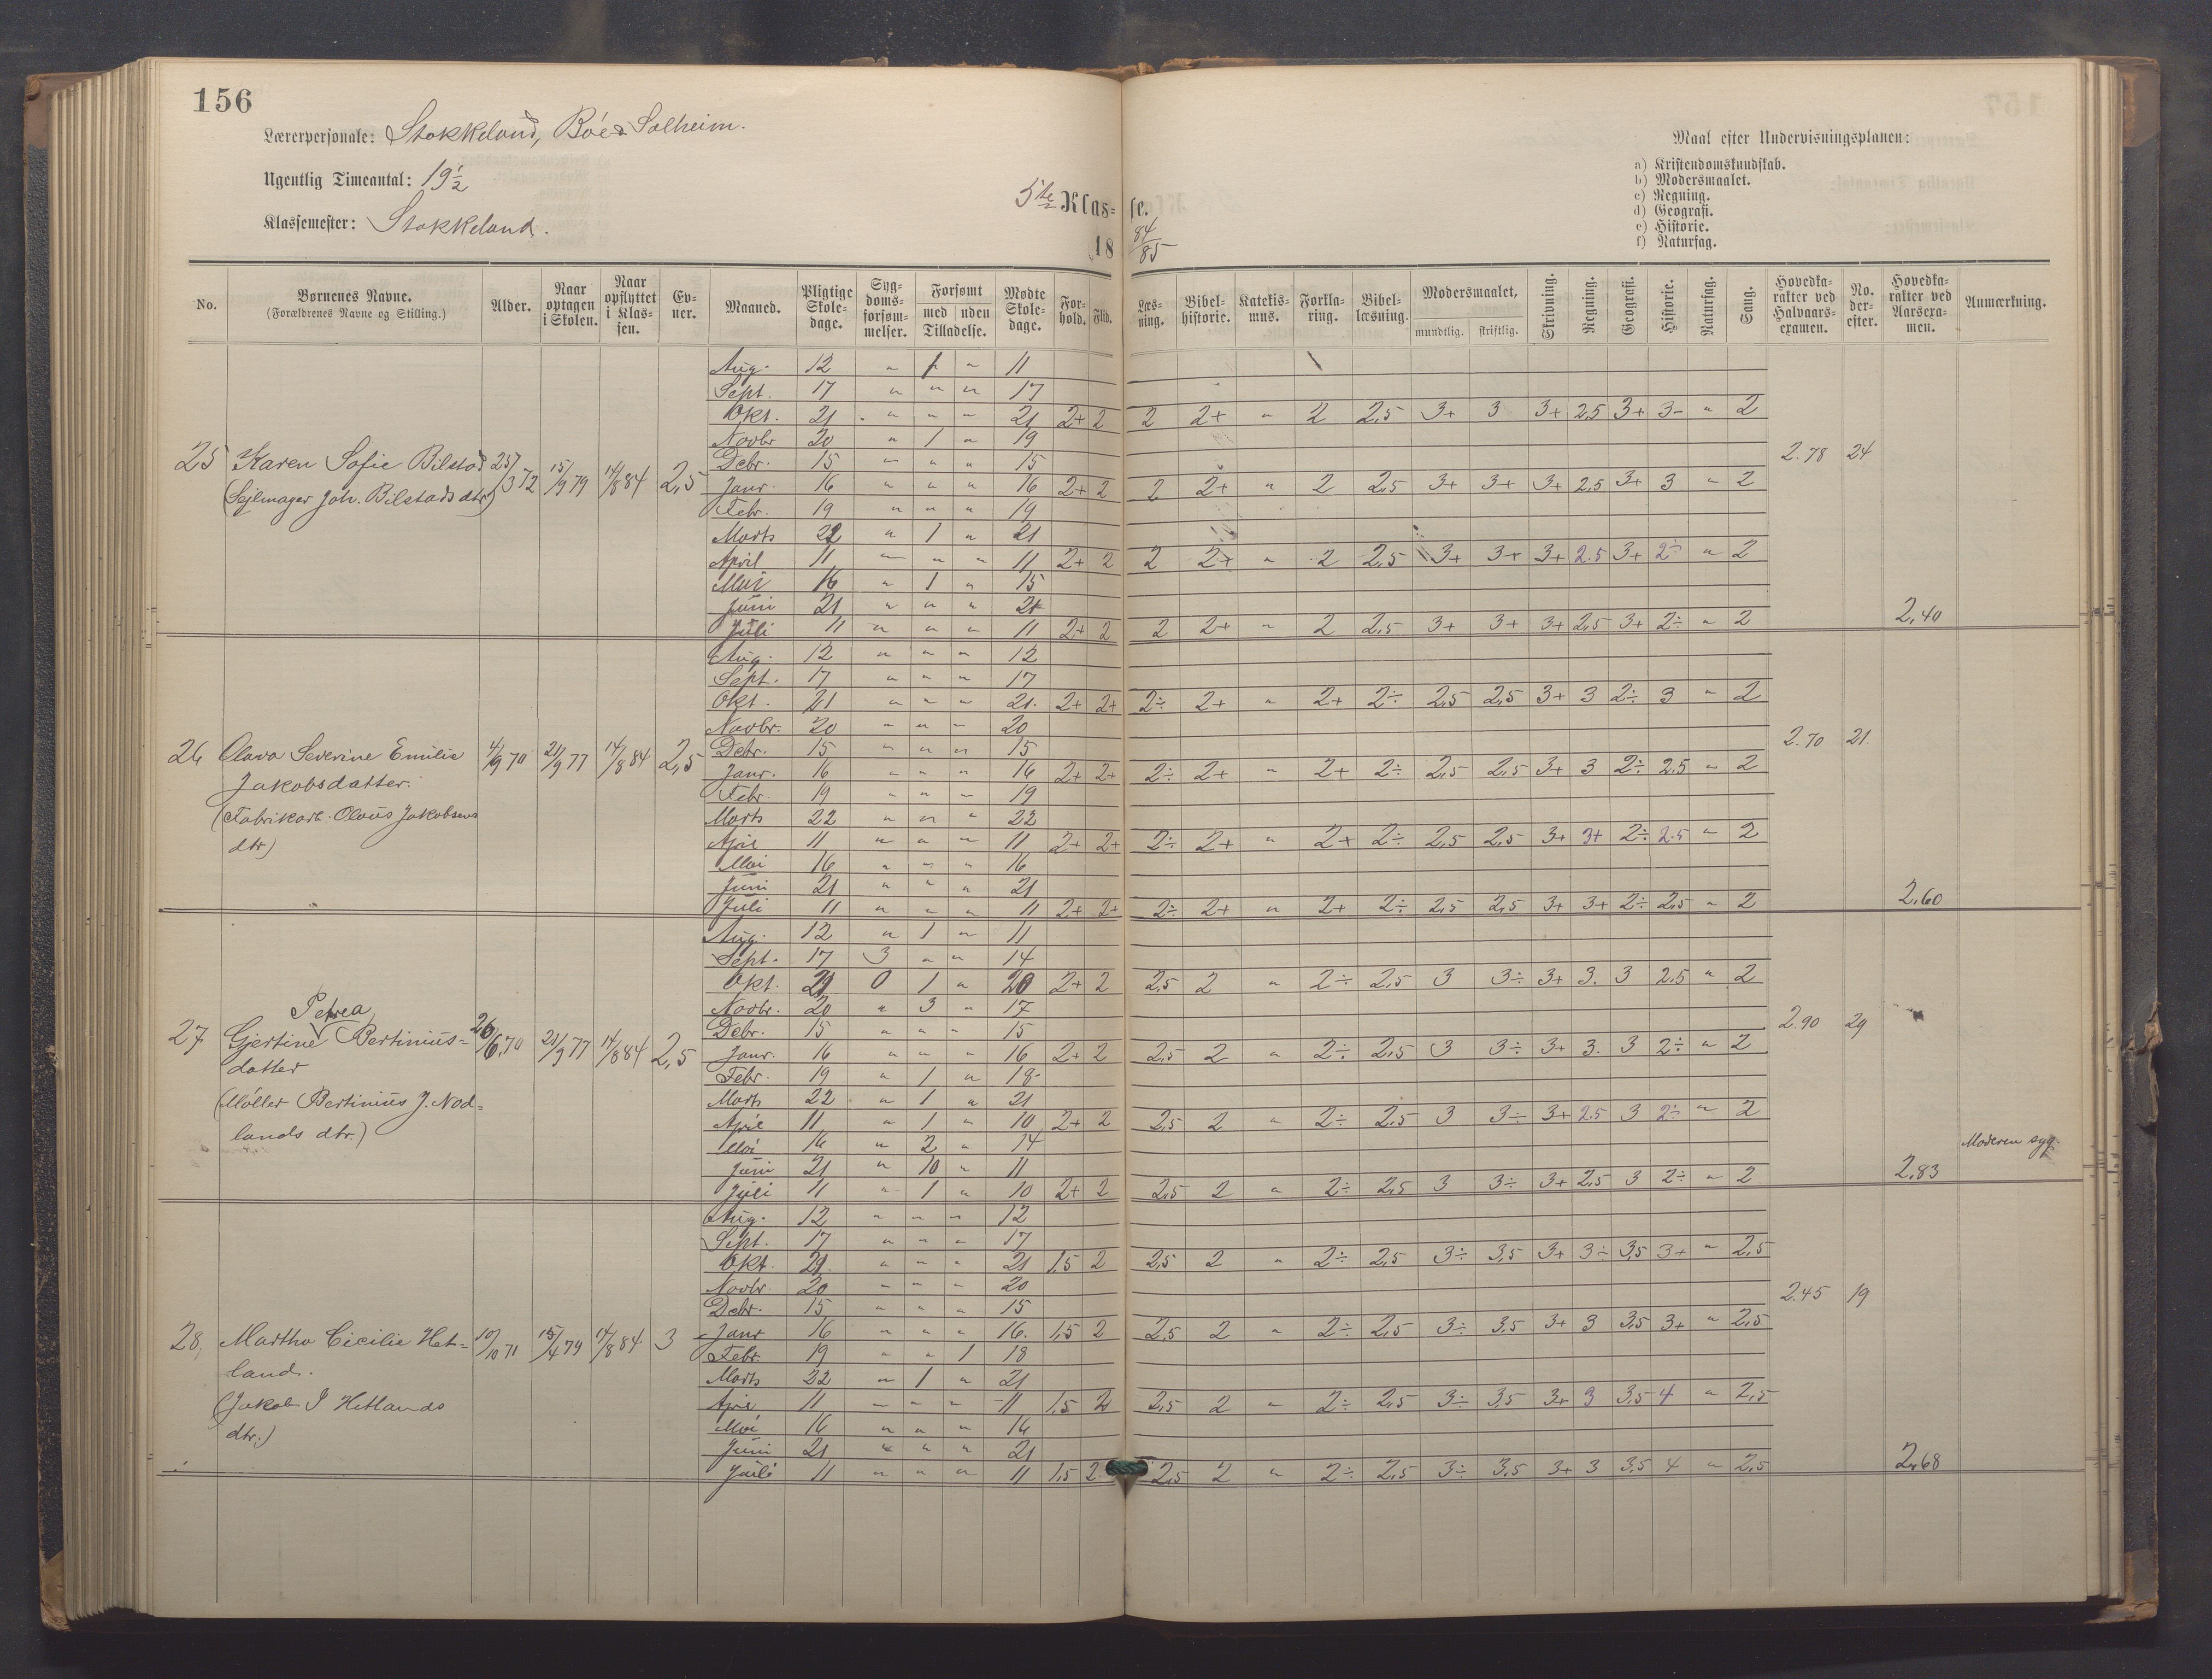 156
Lærerpersonale: Stokkeland, Bóe & Solheim.
Ugentlig Timeantal: 19½
Klassemester: Stokkeland.
5te Klas- se.
18 84/85
Maal efter Undervisningsplanen:
a) Kristendomskundskab.
b) Modersmaalet.
c) Regning.
d) Geografi.
e) Historie.
f) Naturfag.
No. | Børnenes Navne. (Forældrenes Navne og Stilling.) | Alder. | Naar optagen i Skolen. | Naar opflyttet i Klassen. | Evner. | Maaned. | Pligtige Skoledage. | Sygdomsforsømmelser. | Forsømt med uden Tilladelse. | Mødte Skoledage. | Forhold. | Flid. | Læsning. | Bibelhistorie. | Katekismus. | Forklaring. | Bibellæsning. | Modersmaalet, mundtlig. skriftlig. | Skrivning. | Regning. | Geografi. | Historie. | Naturfag. | Sang. | Hovedkarakter ved Halvaarsexamen. | No. derefter. | Hovedkarakter ved Aarsexamen. | Anmærkning.
25 Karen Sofie Bilstad 25/3 72 15/9 79 14/8 84 2,5
(Sejlmager Joh. Bilstads dtr)
Aug. 12 " 1 " 11
Sept. 17 " " " 17
Okt. 21 " " " 21 2+ 2 2 2+ " 2 2,5 3+ 3 3+ 2,5 3+ 3- " 2
Novbr 20 " 1 " 19
Debr. 15 " " " 15 2.78 24
Janr. 16 " " " 16 2+ 2 2 2+ " 2 2,5 3+ 3+ 3+ 2,5 3+ 3 " 2
Febr. 19 " " " 19
Marts 22 " 1 " 21
April 11 " " " 11 2+ 2 2 2+ " 2 2,5 3+ 3+ 3+ 2.5 3+ 2÷ " 2
Mai 16 " 1 " 15
Juni 21 " " " 21
Juli 11 " " " 11 2+ 2 2 2+ " 2 2,5 3+ 3+ 3+ 2,5 3+ 2÷ " 2 2,40
26 Olava Severine Emilie 4/9 70 21/9 77 14/8 84 2,5
Jakobsdatter.
(Fabrikarb. Olaus Jakobsens
dtr)
Aug. 12 " " " 12
Sept. 17 " " " 17
Okt. 21 " " " 21. 2+ 2+ 2÷ 2+ " 2+ 2÷ 2,5 2,5 3+ 3 2÷ 3 " 2
Novbr. 20 " " " 20
Debr. 15 " " " 15 2.70 21.
Janr. 16 " " " 16 2+ 2+ 2÷ 2+ " 2+ 2÷ 2,5 2,5 3+ 3 2÷ 2.5 " 2
Febr. 19 " " " 19
Marts 22 " " " 22
April 11 " " " 11 2+ 2+ 2÷ 2+ " 2+ 2÷ 2,5 2,5 3+ 3+ 2÷ 2.5 " 2
Mai 16 " " " 16
Juni 21 " " " 21
Juli 11 " " " 11 2+ 2+ 2÷ 2+ " 2+ 2÷ 2,5 2,5 3+ 3+ 2÷ 2,5 " 2 2,60
Petrea
27 Gjertine Bertinius= 26/6 70 21/9 77 14/8 84 2,5
datter
(Møller Bertinius J. Nod=
lands dtr.)
Aug. 12 " 1 " 11
Sept. 17 3 " " 14
Okt. 21 0 1 " 20 2+ 2 2,5 2 " 2÷ 2,5 3 3÷ 3+ 3. 3 2.5 " 2
Novbr. 20 " 3 " 17
Debr. 15 " " " 15 2.90 29
Janr. 16 " " " 16 2+ 2 2,5 2 " 2÷ 2,5 3 3÷ 3+ 3. 3 2÷ " 2
Febr. 19 " 1 " 18
Marts 22 " 1 " 21
April 11 " 1 " 10 2+ 2 2,5 2 " 2÷ 2,5 3 3÷ 3+ 2.5 3 2÷ " 2
Mai 16 " 2 " 14
Juni 21 " 10 " 11 Moderen syg.
Juli 11 " 1 " 10 2+ 2 2,5 2 " 2÷ 2,5 3 3÷ 3+ 2,5 3 2÷ " 2 2,83
28, Martha Cicilie Het= 10/10 71 15/4 79 14/8 84 3
land.
(Jakob I Hetlands
dtr.)
Aug. 12 " " " 12
Sept. 17 " " " 17
Okt. 21. " " " 21 1,5 2 2,5 2 " 2÷ 2,5 3÷ 3,5 3+ 3÷ 3,5 3+ " 2,5
Novbr. 20 " " " 20
Debr. 15 " " " 15 2.45 19
Janr 16 " " " 16. 1,5 2 2,5 2 " 2÷ 2,5 3÷ 3,5 3+ 3 3,5 3+ " 2,5
Febr. 19 " " 1 18
Marts 22 " 1 " 21
April 11 " " " 11 1,5 2 2,5 2 " 2÷ 2,5 3÷ 3,5 3+ 3 3,5 4 " 2,5
Mai 16 " " " 16
Juni 21 " " " 21
Juli 11 " " " 11 1,5 2 2,5 2 " 2÷ 2,5 3÷ 3,5 3+ 3 3,5 4 " 2,5 2,68